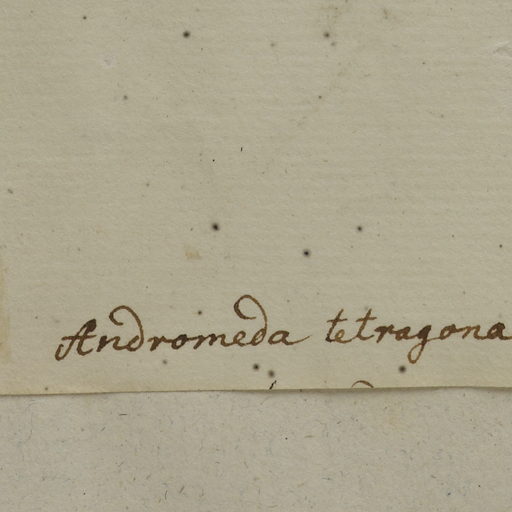 Andromeda tetragona